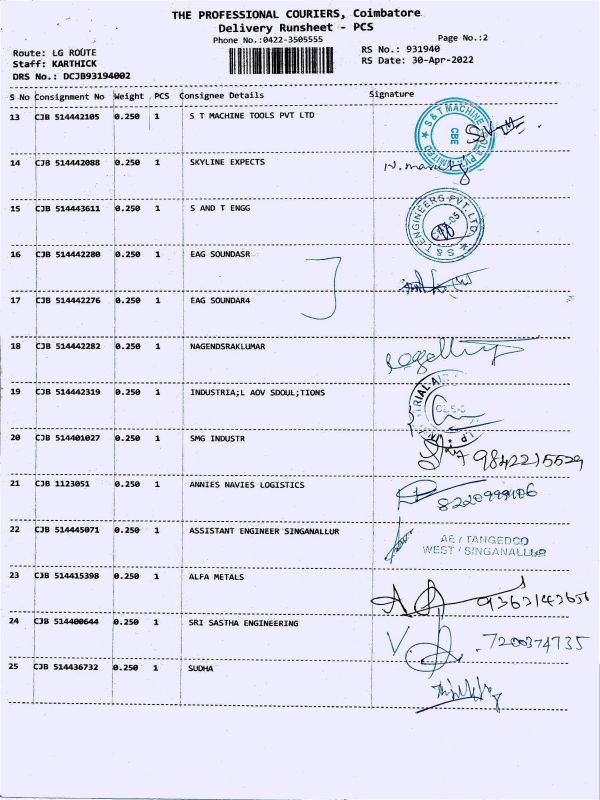 THE PROFESSIONAL COURIERS, Coimbatore
Delivery Runsheet - PCS
Phone No.:0422-3505555
Page No.:2
Route: LG ROUTE
RS No.: 931940
Staff: KARTHICK
RS Date: 30-Apr-2022
DRS No.: DCJB93194002
S No Consignment No Weight PCS Consignee Details Signature
13 CJB 514442105 0.250 1 S T MACHINE TOOLS PVT LTD
S & T MACHINE TOOLS PVT LIMITED CBE
14 CJB 514442088 0.250 1 SKYLINE EXPECTS
15 CJB 514443611 0.250 1 S AND T ENGG
S & T ENGINEERS PVT. LTD.
16 CJB 514442280 0.250 1 EAG SOUNDASR
17 CJB 514442276 0.250 1 EAG SOUNDAR4
18 CJB 514442282 0.250 1 NAGENDSRAKLUMAR
19 CJB 514442319 0.250 1 INDUSTRIA;L AOV SDOUL;TIONS
20 CJB 514401027 0.250 1 SMG INDUSTR
21 CJB 1123051 0.250 1 ANNIES NAVIES LOGISTICS
22 CJB 514445071 0.250 1 ASSISTANT ENGINEER SINGANALLUR
AE / TANGEDCO
WEST / SINGANALLUR
23 CJB 514415398 0.250 1 ALFA METALS
24 CJB 514400644 0.250 1 SRI SASTHA ENGINEERING
7200374735
25 CJB 514436732 0.250 1 SUDHA